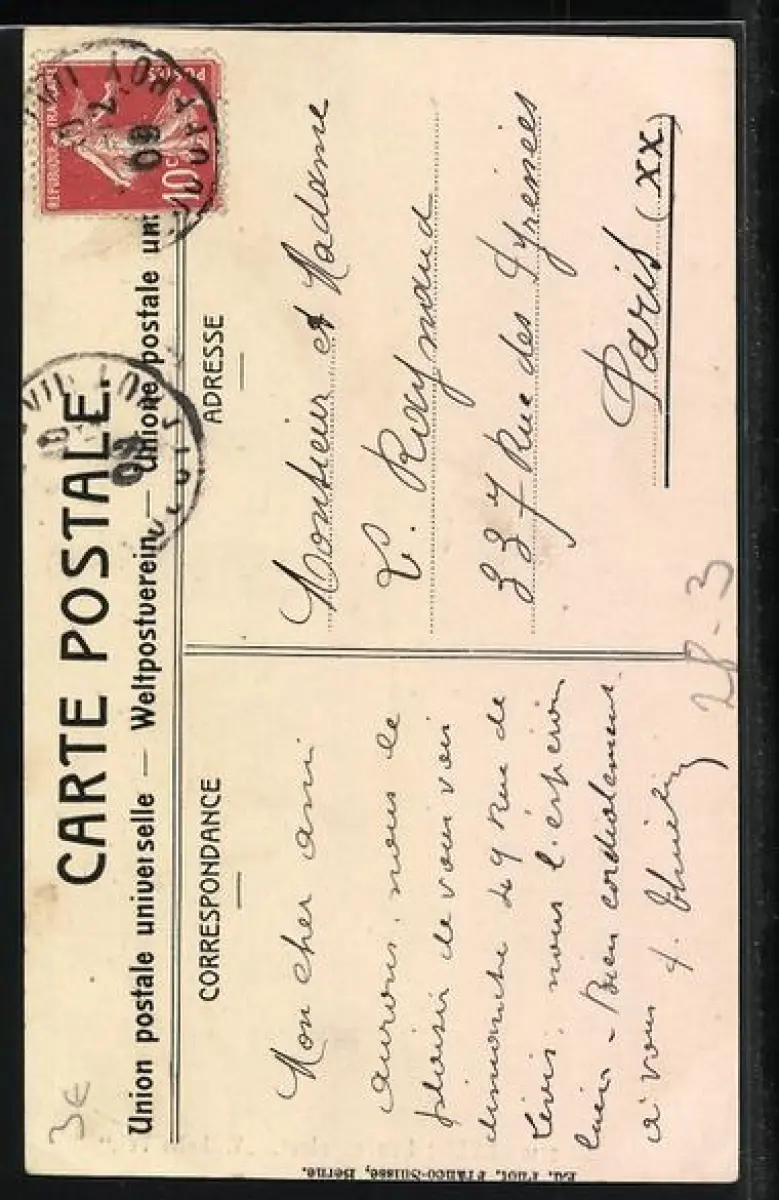 CARTE POSTALE.
Union postale universelle — Weltpostverein — Unione postale un
CORRESPONDANCE
Mon cher ami
aurons-nous le
plaisir de vous voir
dimanche 9 Rue de
Levis, nous l'espérons
bien - Bien cordialement
à vous
ADRESSE
Monsieur et Madame
Raymond
337 Rue des Pyrénées
Paris (XX)
REPUBLIQUE FRANÇAISE
POSTES
10c
09
09
28-3
3€
Ed. Phot. Franco-Suisse, Berne.